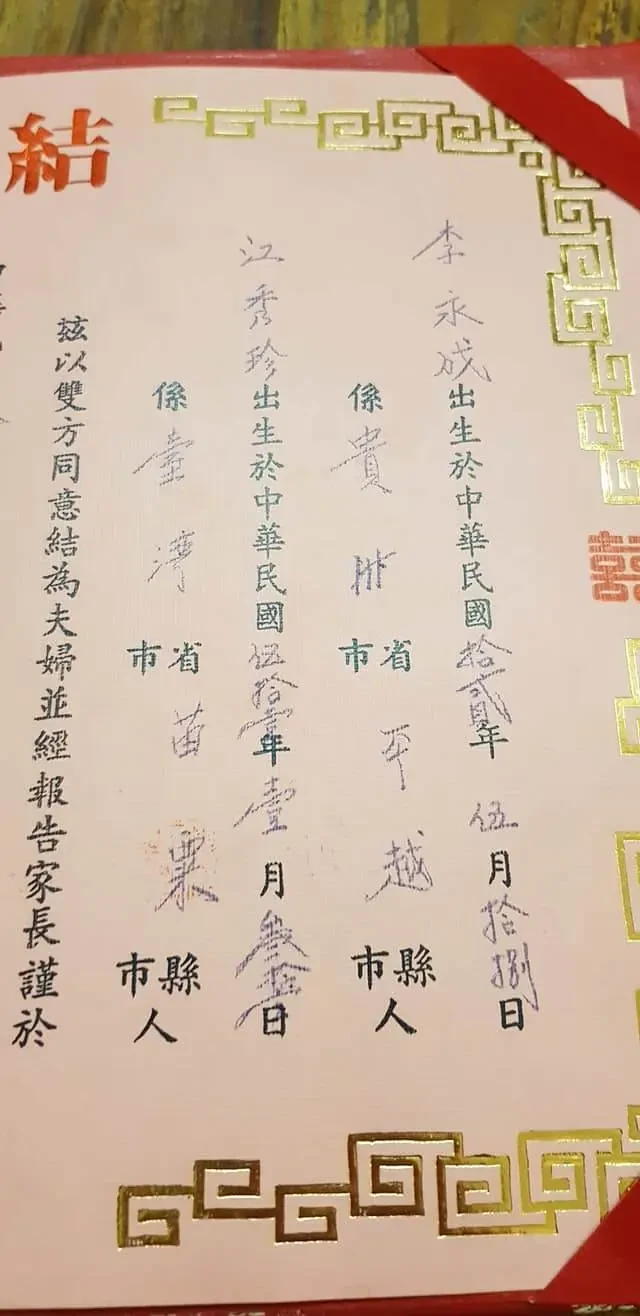 囍
李永成出生於中華民國拾貳年伍月拾捌日
係貴州省市平越縣市人
江秀珍出生於中華民國伍拾壹年壹月叁拾日
係臺灣省市苗栗縣市人
結
茲以雙方同意結為夫婦並經報告家長謹於